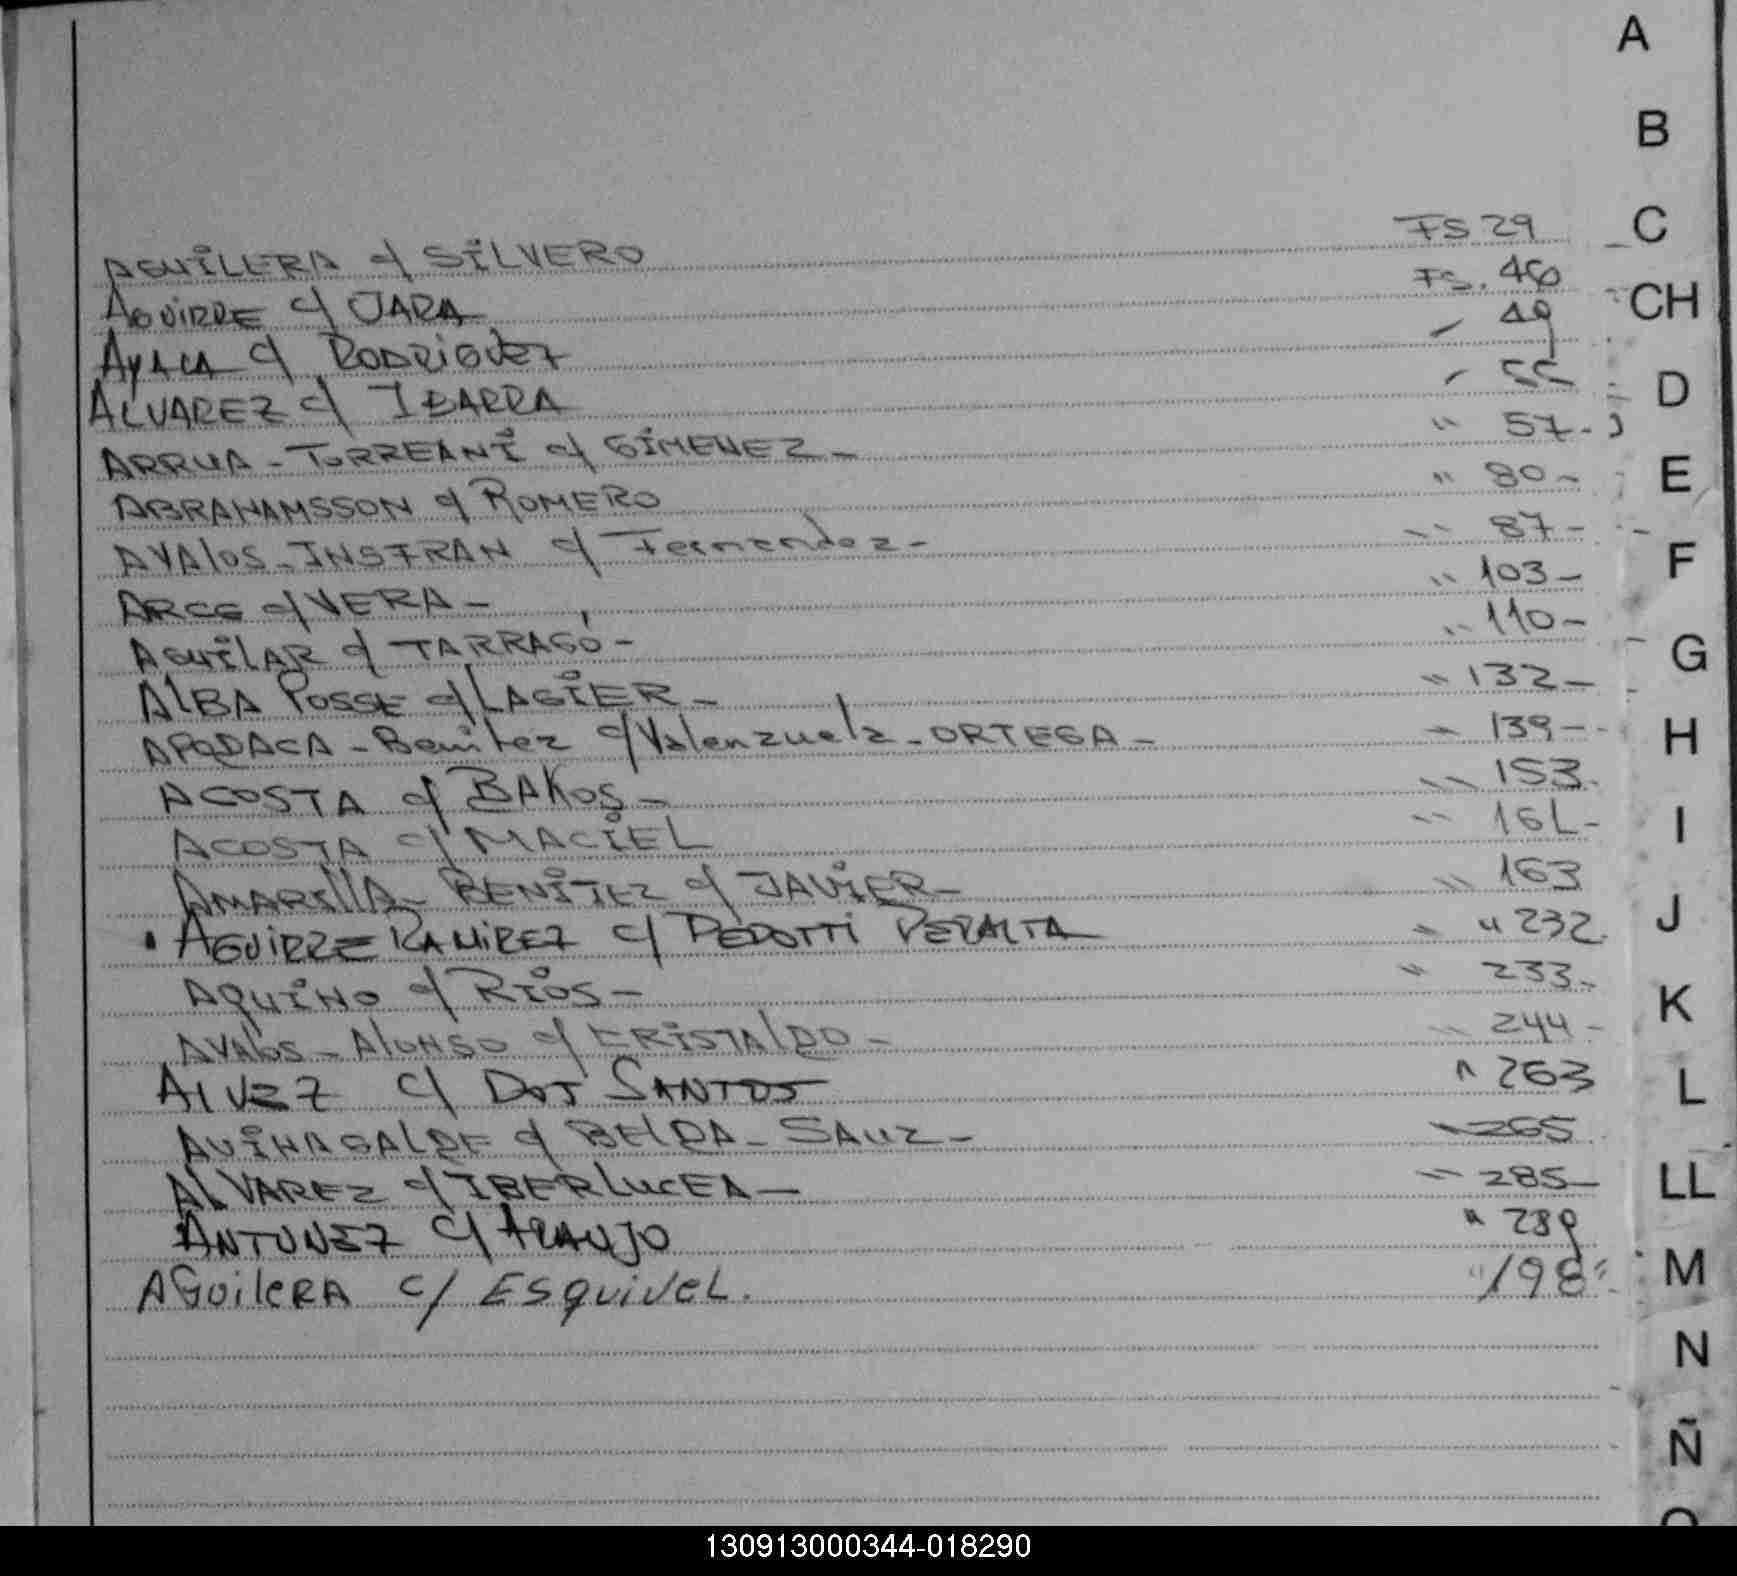 A
B
C
CH
D
E
F
G
H
I
J
K
L
LL
M
N
Ñ
AGUILERA c/ SILVERO FS 29
AGUIRRE c/ JARA FS. 46
AYALA c/ RODRIGUEZ 49
ALVAREZ c/ IBARRA 55
ARRUA - TORREANI c/ GIMENEZ - " 57-
ABRAHAMSSON c/ ROMERO " 80-
AVALOS - INSFRAN c/ Fernandez - " 87-
ARCE c/ VERA - " 103-
AGUILAR c/ TARRAGÓ - " 110-
ALBA POSSE c/ LAGIER - " 132-
APODACA - Benitez c/ Valenzuela - ORTEGA - " 139-
ACOSTA c/ BAKOS - " 153.
ACOSTA c/ MACIEL " 161-
AMARILLA - BENITEZ c/ JAVIER - " 163
AGUIRRE RAMIREZ c/ PEDOTTI PERALTA " 232.
AQUINO c/ RIOS - " 233-
AVALOS - ALONSO c/ CRISTALDO - " 244-
ALVEZ c/ DOS SANTOS " 263
AVINAGALDE c/ BELDA - SAUZ - " 265
ALVAREZ c/ IBERLUCEA - " 285-
ANTUNEZ c/ ARAUJO " 289
AGUILERA c/ ESQUIVEL. " 198"
130913000344-018290